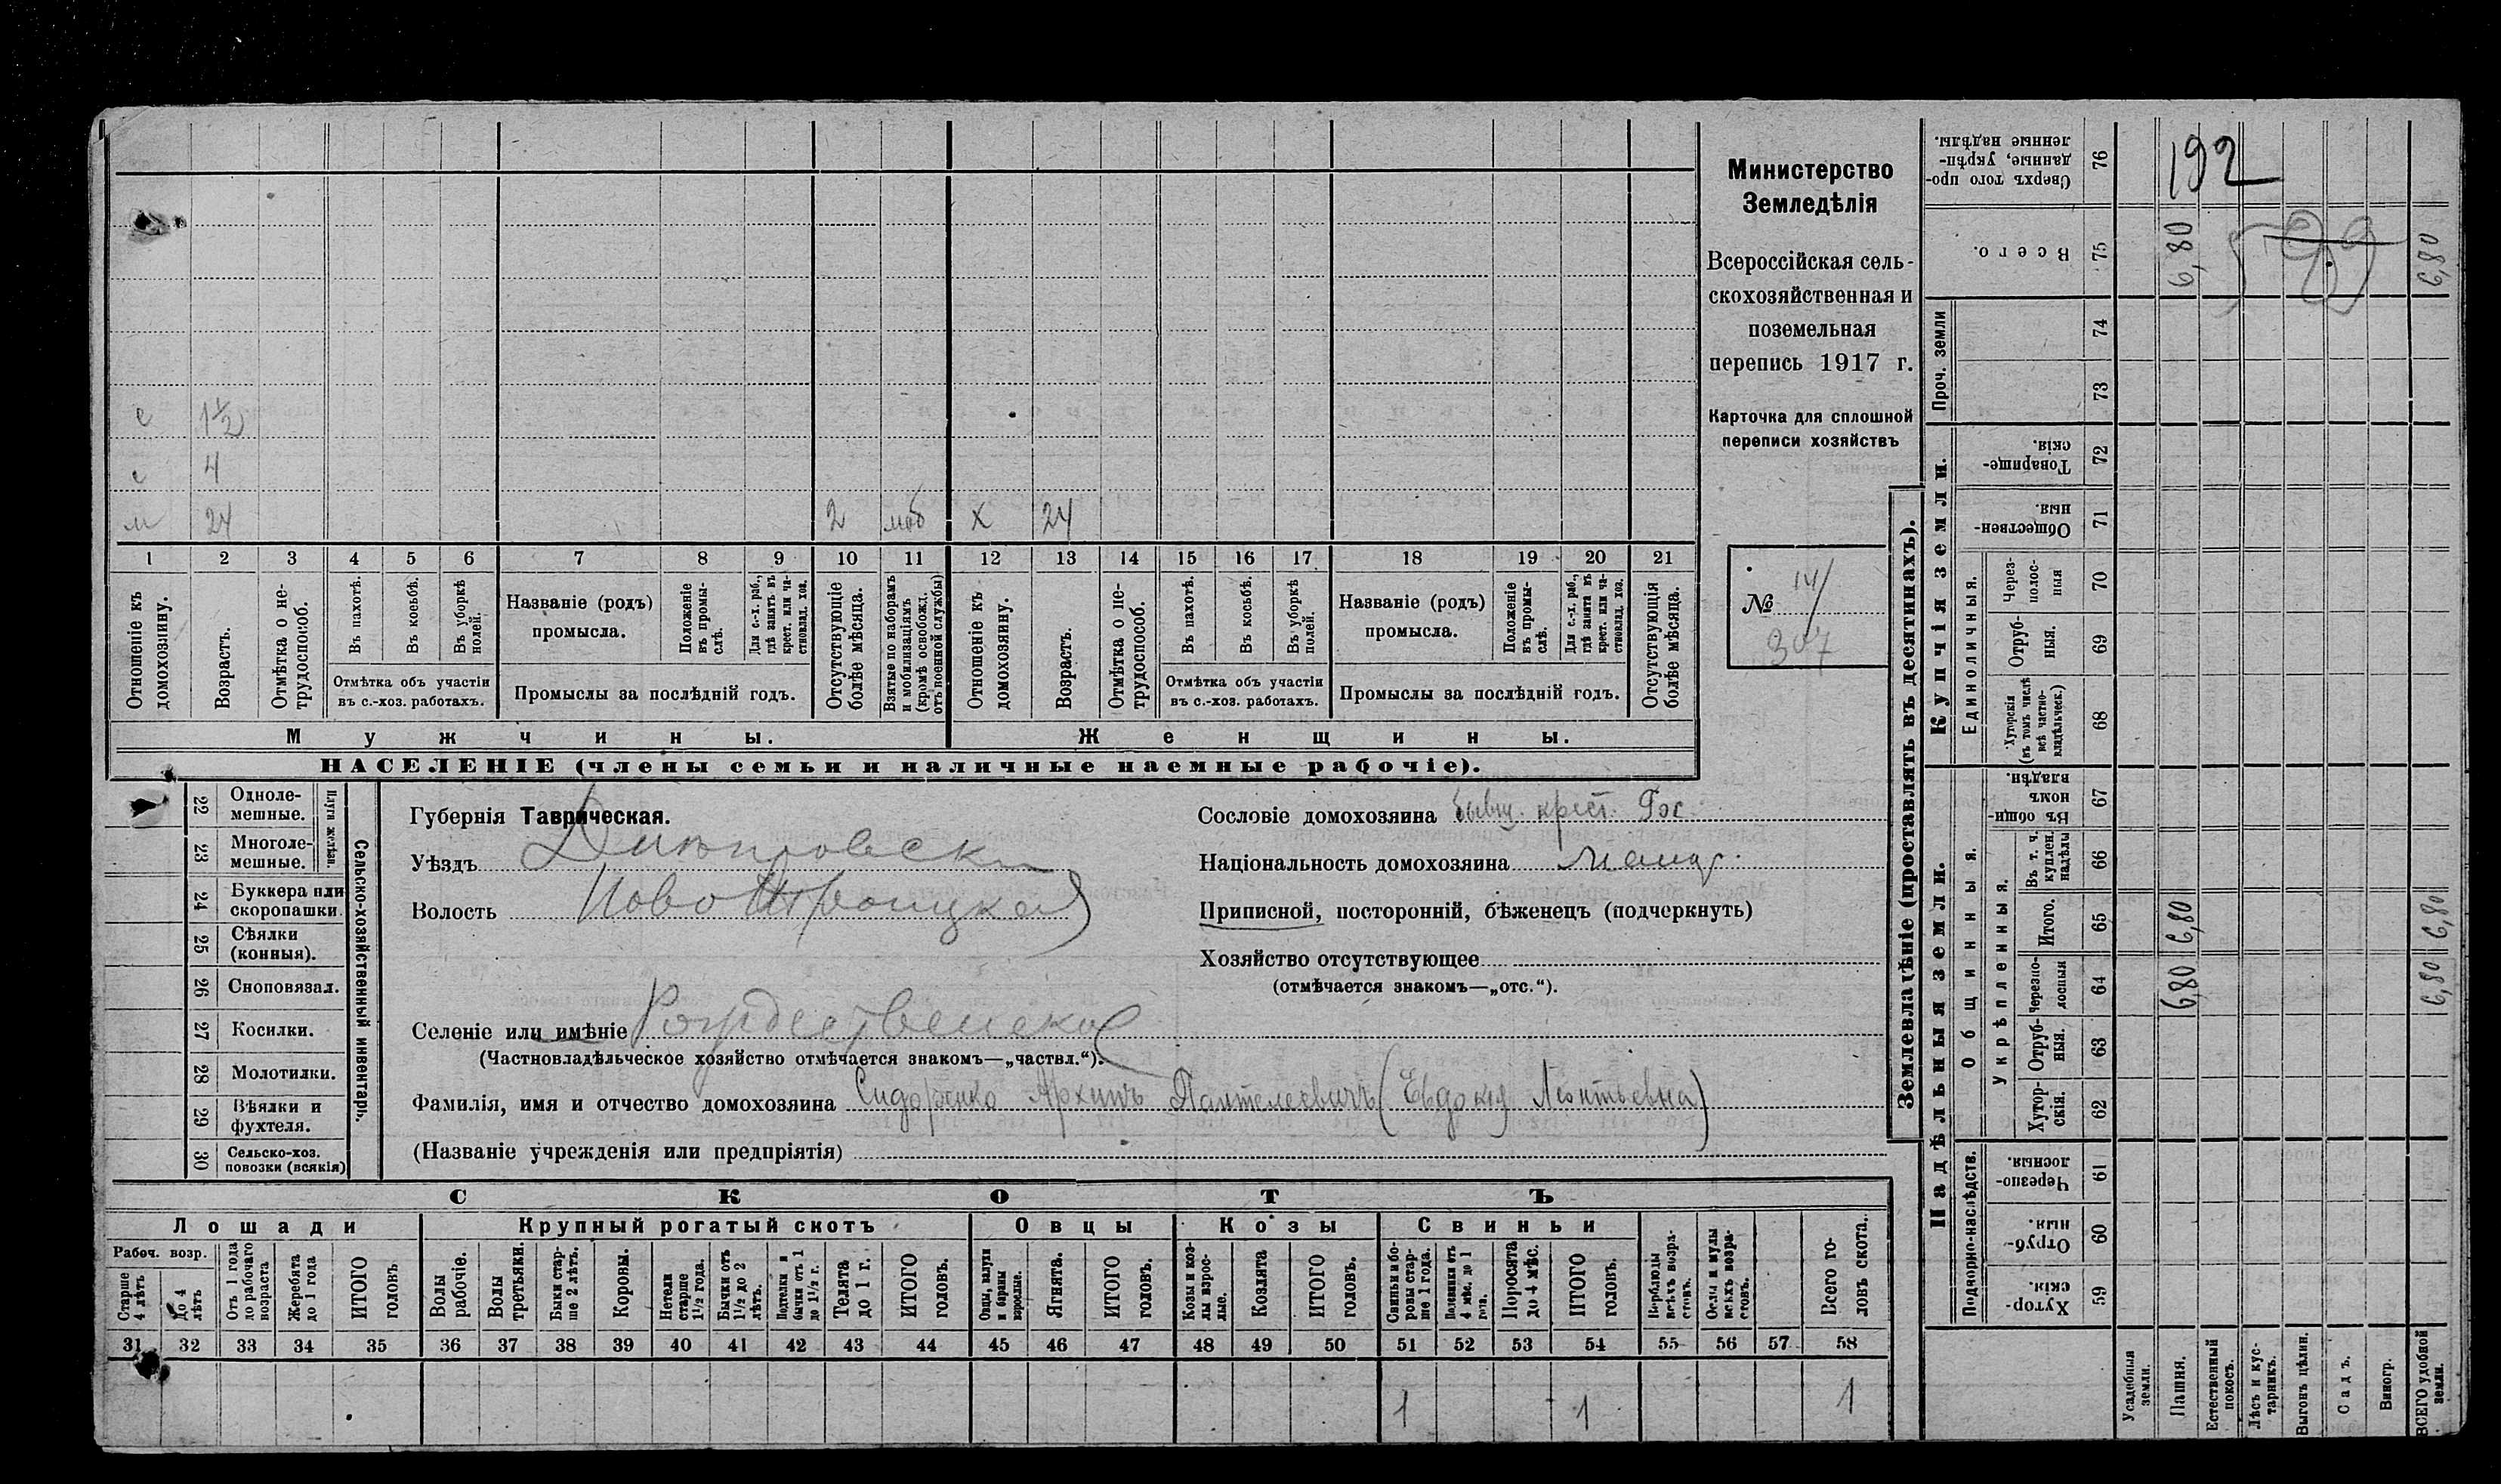 Министерство
Земледѣлія
Всероссійская сель-
скохозяйственная и
поземельная
перепись 1917 г.
Карточка для сплошной
переписи хозяйствъ
№ 14/
307
с 1½
с 4
м 24 2 моб х 24
1 2 3 4 5 6 7 8 9 10 11 12 13 14 15 16 17 18 19 20 21
Отношеніе къ домохозяину.
Возрастъ.
Отмѣтка о не-трудоспособ.
Въ пахотѣ.
Въ косьбѣ.
Въ уборкѣ полей.
Отмѣтка объ участіи
въ с.-хоз. работахъ.
Названіе (родъ)
промысла.
Положеніе въ промы-слѣ.
Для с.-х. раб., гдѣ занятъ въ крест. или ча-стновлад. хоз.
Промыслы за послѣдній годъ.
Отсутствующіе болѣе мѣсяца.
Взятые по наборамъ и мобилизаціямъ (кромѣ освобожд. отъ военной службы)
Отношеніе къ домохозяину.
Возрастъ.
Отмѣтка о не-трудоспособ.
Въ пахотѣ.
Въ косьбѣ.
Въ уборкѣ полей.
Отмѣтка объ участіи
въ с.-хоз. работахъ.
Названіе (родъ)
промысла.
Положеніе въ промы-слѣ.
Для с.-х. раб., гдѣ занята въ крест. или ча-стновлад. хоз.
Промыслы за послѣдній годъ.
Отсутствующія болѣе мѣсяца.
Мужчины. Женщины.
НАСЕЛЕНІЕ (члены семьи и наличные наемные рабочіе).
22 Однолe-мешные.
23 Многоле-мешные.
Плуги желѣзн.
24 Буккера или скоропашки.
25 Сѣялки (конныя).
26 Сноповязал.
27 Косилки.
28 Молотилки.
29 Вѣялки и фухтеля.
30 Сельско-хоз. повозки (всякія)
Сельско-хозяйственный инвентарь.
Губернія Таврическая.
Уѣздъ Днѣпровскій
Волость Ново Троицкая
Селеніе или имѣніе Рождественское
(Частновладѣльческое хозяйство отмѣчается знакомъ—„частвл.“).
Фамилія, имя и отчество домохозяина Сидоренко Архипъ Пантелеевичъ (Евдокія Леонтьевна)
(Названіе учрежденія или предпріятія)
Сословіе домохозяина бывш. крест. Гос.
Національность домохозяина
Приписной, посторонній, бѣженецъ (подчеркнуть)
Хозяйство отсутствующее
(отмѣчается знакомъ—„отс.“).
СКОТЪ
Лошади Крупный рогатый скотъ Овцы Козы Свиньи
Рабоч. возр.
Старше 4 лѣтъ
До 4 лѣтъ
Отъ 1 года до рабочаго возраста
Жеребята до 1 года
ИТОГО головъ
Волы рабочіе.
Волы третьяки.
Быки стар-ше 2 лѣтъ.
Коровы.
Нетели старше 1½ года.
Бычки отъ 1½ до 2 лѣтъ.
Подтелки и бычки отъ 1 до 1½ г.
Телята до 1 г.
ИТОГО головъ.
Овцы, валухи и бараны взрослые.
Ягнята.
ИТОГО головъ.
Козы и коз-лы взрос-лые.
Козлята
ИТОГО головъ.
Свиньи и бо-ровы стар-ше 1 года.
Подсвинки отъ 4 мѣс. до 1 года.
Поросята до 4 мѣс.
ИТОГО головъ.
Верблюды всѣхъ возра-стовъ.
Ослы и мулы всѣхъ возра-стовъ.
Всего го-ловъ скота.
31 32 33 34 35 36 37 38 39 40 41 42 43 44 45 46 47 48 49 50 51 52 53 54 55 56 57 58
1 1 1
Землевладѣніе (проставлять въ десятинахъ).
Надѣльныя земли. Купчія земли. Проч. земли
Подворно-наслѣдств. Общинныя. Единоличныя.
Укрѣпленныя.
Хутор-скія. 59
Отруб-ныя. 60
Черезпо-лосныя. 61
Хутор-скія. 62
Отруб-ныя. 63
Черезпо-лосныя 64 6,80 6,80
Итого. 65 6,80 6,80
Въ т. ч. куплен. надѣлы 66
Въ общин-номъ владѣн. 67
Хуторскія (въ томъ числѣ всѣ частно-владѣльческ.) 68
Отруб-ныя. 69
Через-полос-ныя 70
Обществен-ныя. 71
Товарище-скія. 72
73
74
Всего. 75 6,80 6,80
Сверхъ того про-данные, укрѣп-ленные надѣлы. 76
192
Усадебныя земли.
Пашня.
Естественный покосъ.
Лѣсъ и кус-тарникъ.
Выгонъ цѣлин.
Садъ.
Виногр.
ВСЕГО удобной земли.